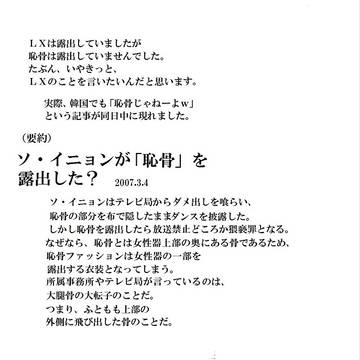 ＬＸは露出していましたが
恥骨は露出していませんでした。
たぶん、いやきっと、
ＬＸのことを言いたいんだと思います。
実際、韓国でも「恥骨じゃねーよｗ」
という記事が同日中に現れました。
（要約）
ソ・イニョンが「恥骨」を
露出した？ 2007.3.4
ソ・イニョンはテレビ局からダメ出しを喰らい、
恥骨の部分を布で隠したままダンスを披露した。
しかし恥骨を露出したら放送禁止どころか猥褻罪となる。
なぜなら、恥骨とは女性器上部の奥にある骨であるため、
恥骨ファッションは女性器の一部を
露出する衣装となってしまう。
所属事務所やテレビ局が言っているのは、
大腿骨の大転子のことだ。
つまり、ふともも上部の
外側に飛び出した骨のことだ。